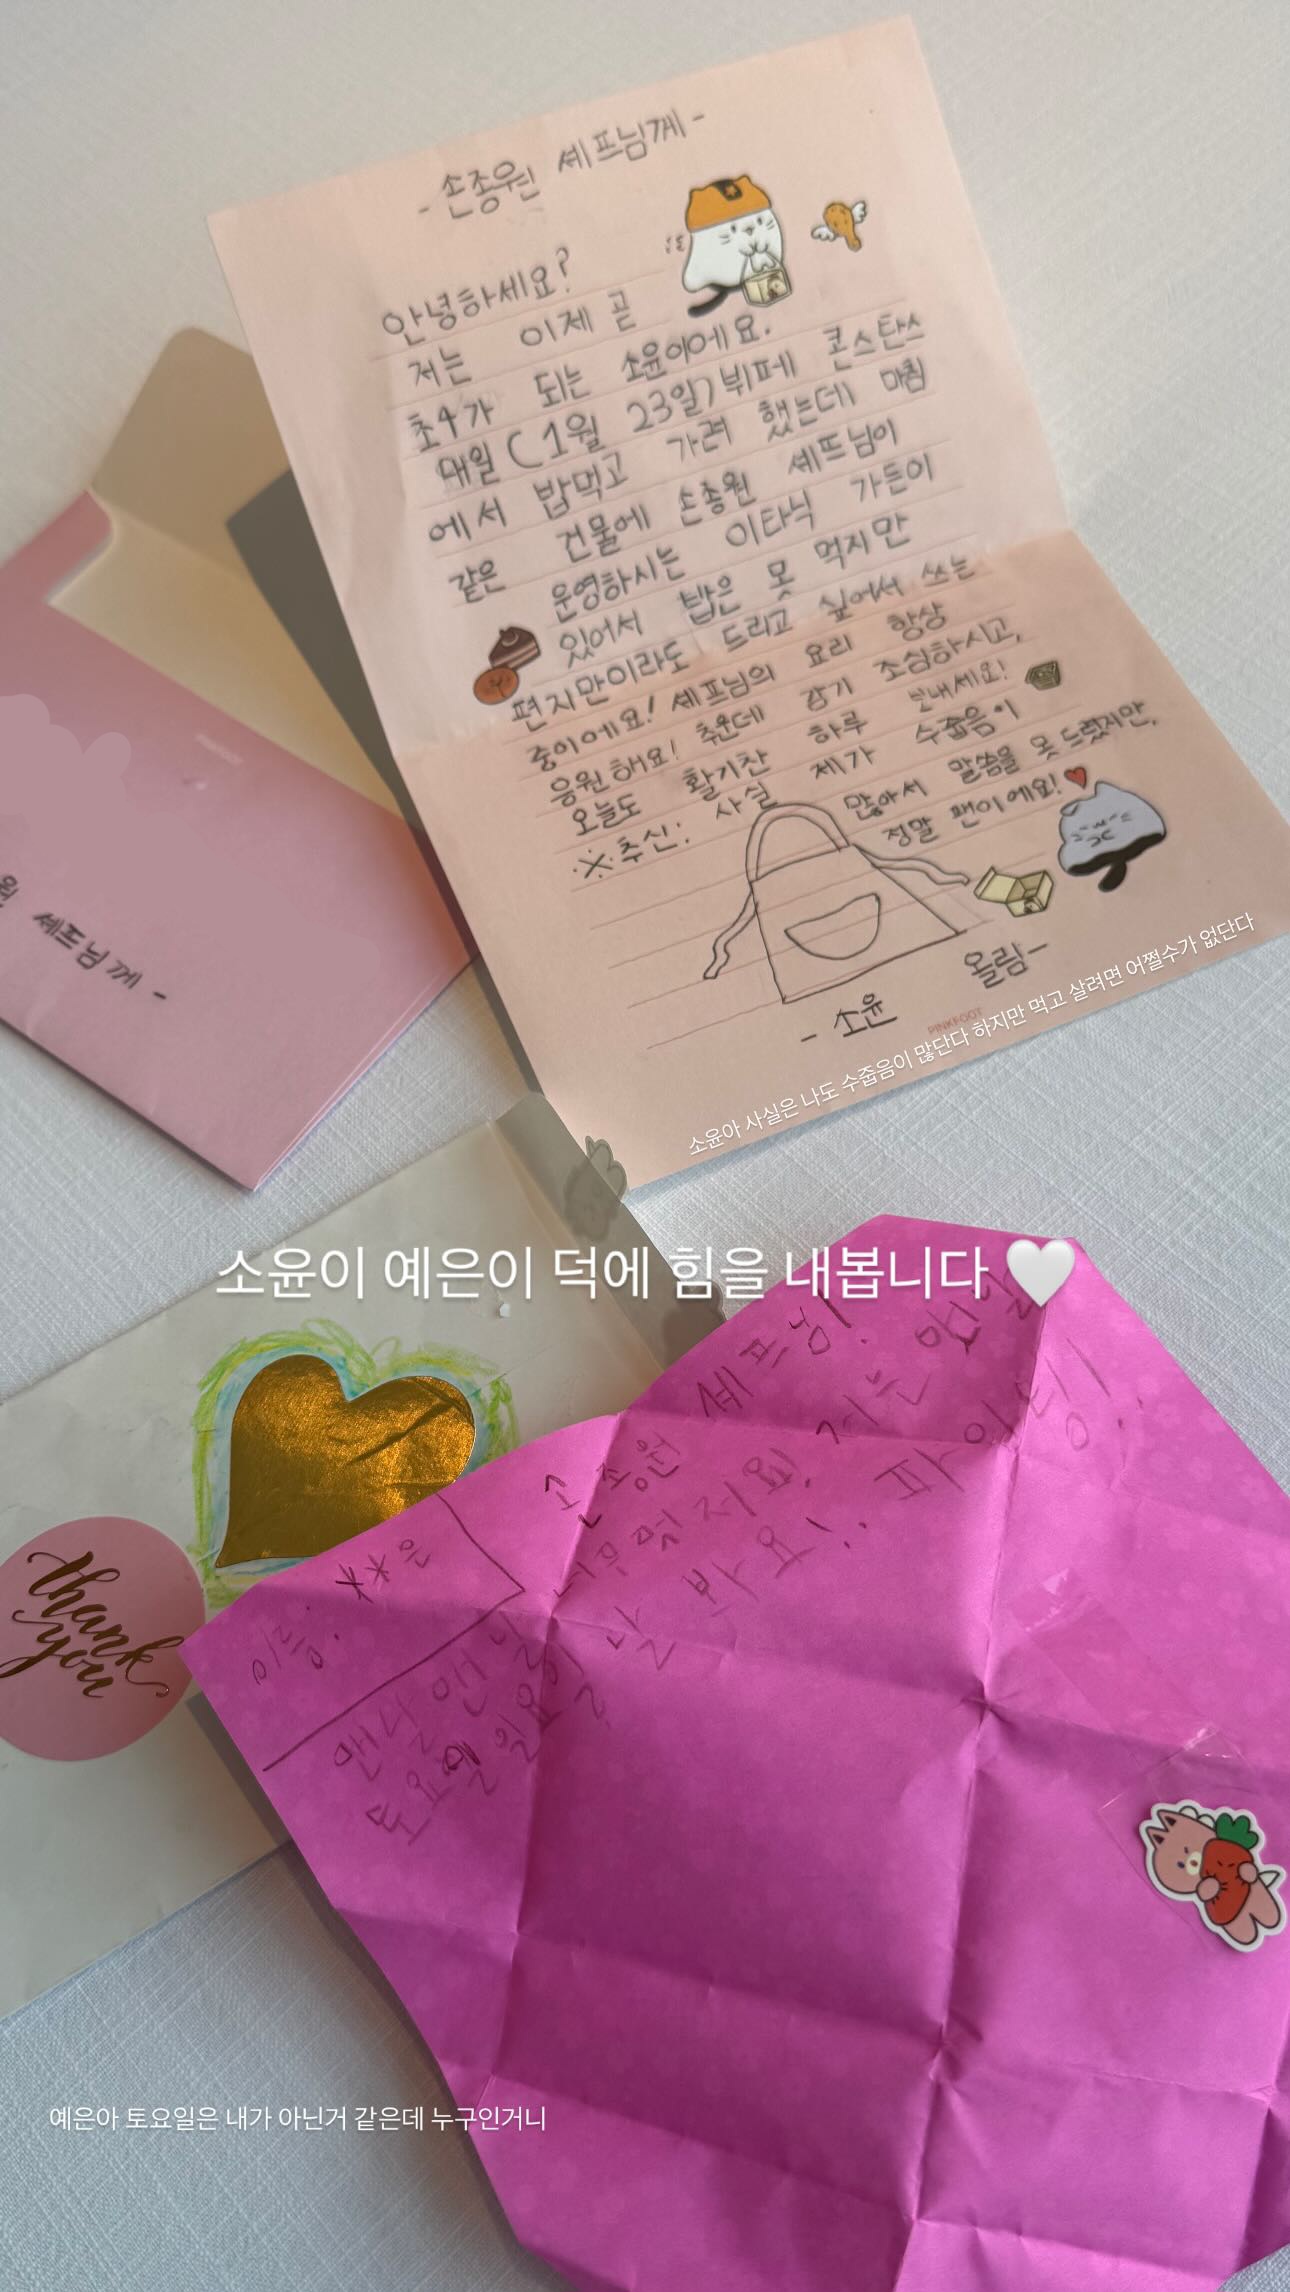 - 손종원 셰프님께 -
안녕하세요?
저는 이제 곧
초4가 되는 소윤이에요.
매일 (1월 23일) 뷔페 콘스탄스
에서 밥먹고 가려 했는데 마침
같은 건물에 손종원 셰프님이
운영하시는 이타닉 가든이
있어서 밥은 못 먹지만
편지만이라도 드리고 싶어서 쓰는
중이에요! 셰프님의 요리 항상
응원해요! 추운데 감기 조심하시고,
오늘도 활기찬 하루 보내세요!
※추신: 사실 제가 수줍음이
많아서 말씀을 못 드렸지만,
정말 팬이에요!
- 소윤 올림-
PINKFOOT
소윤아 사실은 나도 수줍음이 많단다 하지만 먹고 살려면 어쩔수가 없단다
원 셰프님께 -
소윤이 예은이 덕에 힘을 내봅니다 🤍
thank
you
이름: 은
손종원 셰프님!
너무 멋져요! 저는
맨날 맨날
토요일 일요일 날 봐요! 파이팅!
예은아 토요일은 내가 아닌거 같은데 누구인거니